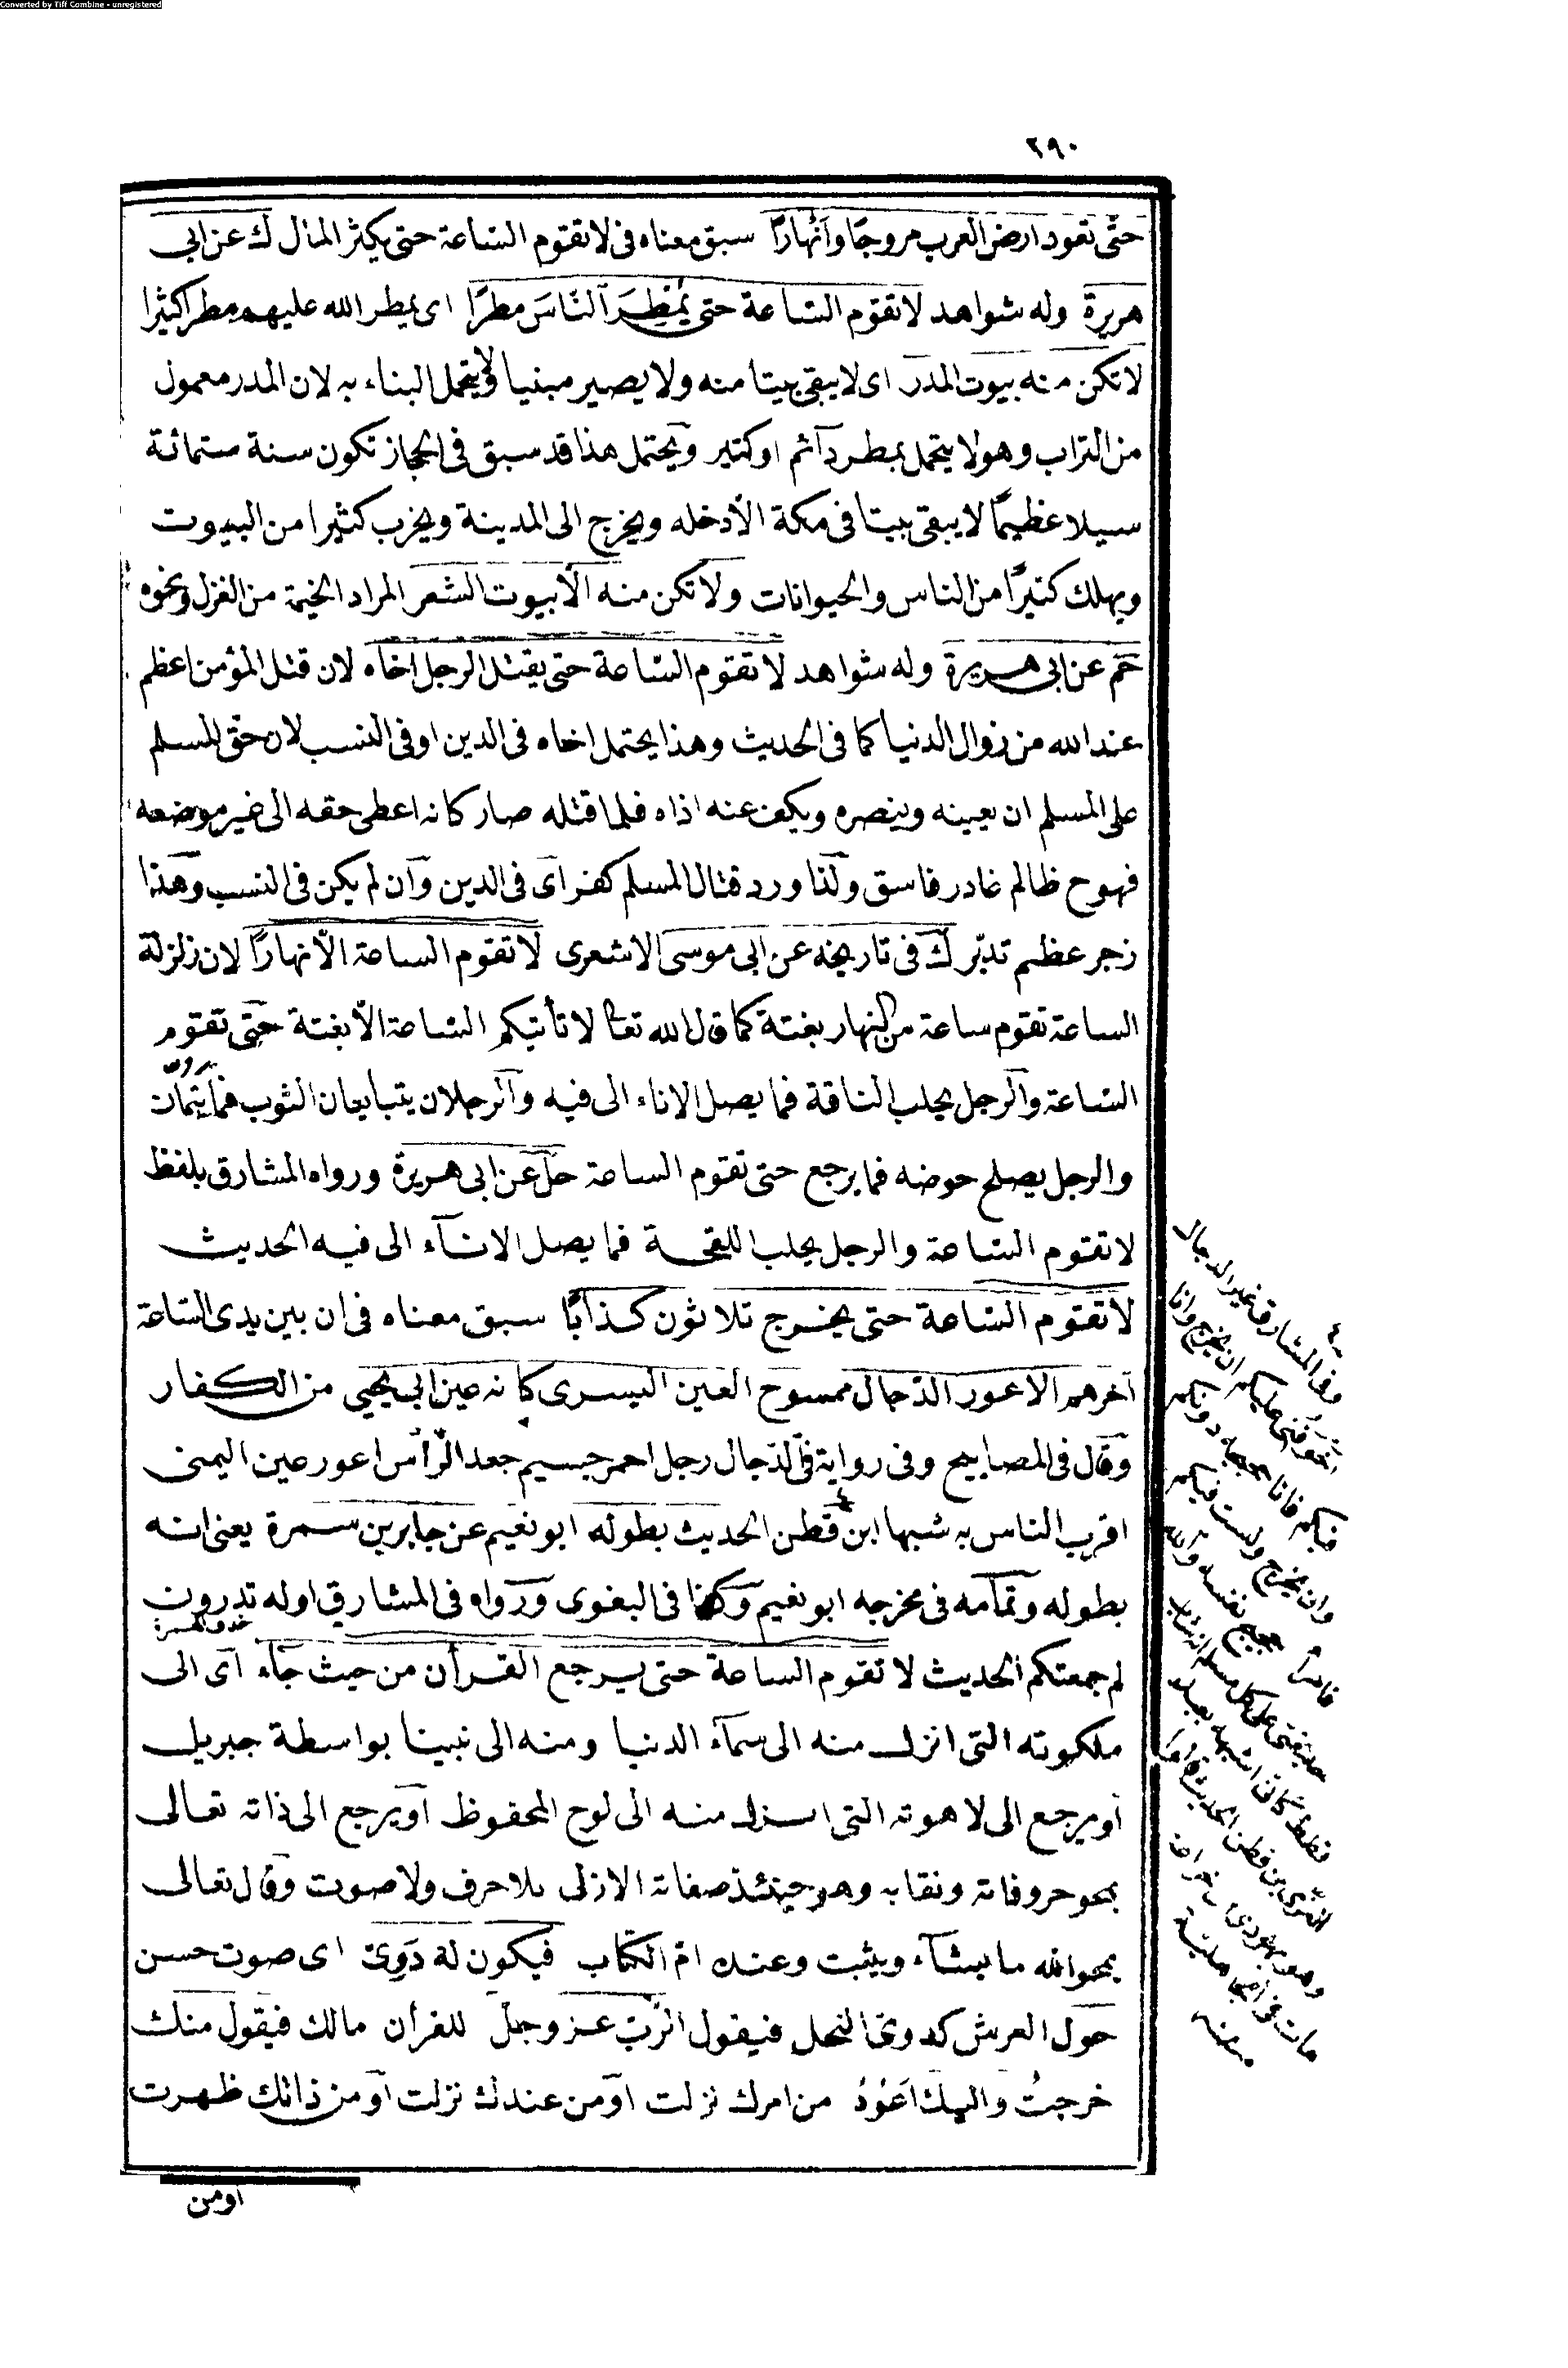 Converted by Tiff Combine - unregistered
٢٩٠
حتى تعود ارض العرب مروجا وانهارا سبق معناه فى لا تقوم الساعة حتى يكثر المال ك عن ابى
هريرة وله شواهد لا تقوم الساعة حتى يُمْطِرَ النَّاسَ مطرًا اى يمطر الله عليهم مطرا كثيرا
لا تكن منه بيوت المدر اى لا يبقى بيتا منه ولا يصير مبنيا ولا يتحمل البناء به لان المدر معمول
من التراب وهو لا يتحمل بمطر دآئم او كثير ويحتمل هذا قد سبق فى الحجاز تكون سنة ستمائة
سيلا عظيمًا لا يبقى بيتا فى مكة الّا دخله ويخرج الى المدينة ويخرب كثيرا من البيوت
ويهلك كثيرًا من الناس والحيوانات ولا تكن منه الّا بيوت الشعر المراد الخيمة من الغزل ونحوه
حم عن ابى هريرة وله شواهد لا تقوم الساعة حتى يقتل الرجل اخاه لان قتل المؤمن اعظم
عند الله من زوال الدنيا كما فى الحديث وهذا يحتمل اخاه فى الدين او فى النسب لان حق المسلم
على المسلم ان يعينه وينصره ويكف عنه اذاه فلما قتله صار كانه اعطى حقه الى غير موضعه
فهو ح ظالم غادر فاسق ولذا ورد قتال المسلم كفر اى فى الدين وان لم يكن فى النسب وهذا
زجر عظيم تدبّر ك فى تاريخه عن ابى موسى الاشعرى لا تقوم الساعة الّا نهارًا لان زلزلة
الساعة تقوم ساعة من النهار بغتة كما قال الله تعا لا تأتيكم الساعة الّا بغتة حتى تقوم
الساعة والرجل يحلب الناقة فما يصل الاناء الى فيه والرجلان يتبايعان الثوب فما يتمان
والرجل يصلح حوضه فما يرجع حتى تقوم الساعة حل عن ابى هريرة ورواه المشارق بلفظ
لا تقوم الساعة والرجل يحلب اللقحة فما يصل الانآء الى فيه الحديث
لا تقوم الساعة حتى يخرج ثلاثون كذابًا سبق معناه فى ان بين يدى الساعة
آخرهم الاعور الدّجال ممسوح العين اليسرى كانه عين ابى يحيى من الكفار
وقال فى المصابيح وفى رواية فى الدّجال رجل احمر جسيم جعد الرّأس اعور عين اليمنى
اقرب الناس به شبها ابن قطن الحديث بطوله ابو نعيم عن جابر بن سمرة يعنى انه
بطوله وتمامه فى مخرجه ابو نعيم وكذا فى البغوى ورواه فى المشارق اوله تدرون
لم جمعتكم الحديث لا تقوم الساعة حتى يرجع القرأن من حيث جآء اى الى
ملكوته التى انزل منه الى سمآء الدنيا ومنه الى نبينا بواسطة جبريل
او يرجع الى لاهوته التى انزل منه الى لوح المحفوظ او يرجع الى ذاته تعالى
بمحو حروفاته ونقابه وهو حينئذ صفاته الازلى بلا حرف ولا صوت وقال تعالى
يمحوا الله ما يشآء ويثبت وعنده امّ الكتاب فيكون له دَوِىّ اى صوت حسن
حول العرش كدوىّ النحل فيقول الرّبّ عز وجلّ للقرأن مالك فيقول منك
خرجتُ واليك اعُودُ من امرك نزلت او من عندك نزلت او من ذاتك ظهرت
او من
وفى المشارق غير الدجال
اخوفنى عليكم ان يخرج وانا
فيكم فانا حجيجه دونكم
وان يخرج ولست فيكم
فامرؤ حجيج نفسه والله
خليفتى على كل مسلم انه شاب
قطط كانى اشبهه بعبد
العزى بن قطن الحديث
وهو يهودى
مات فى الجاهلية
منه